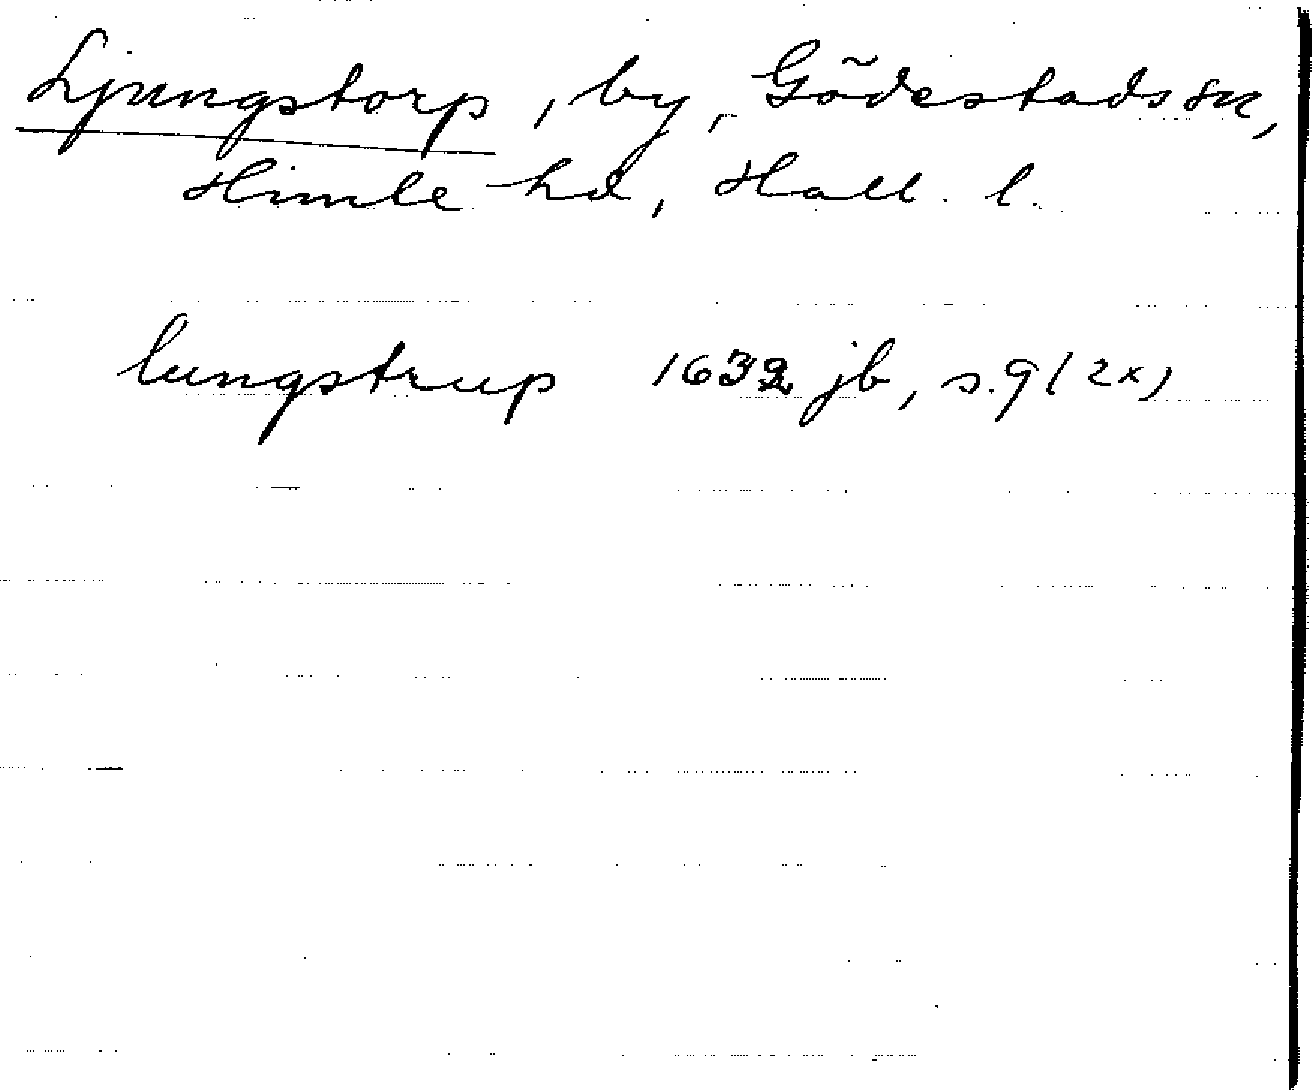 Ljungstorp, by, Gödestads sn,
Himle hd, Hall. l.
lungstrup 1632 jb, s. 9 (2x)